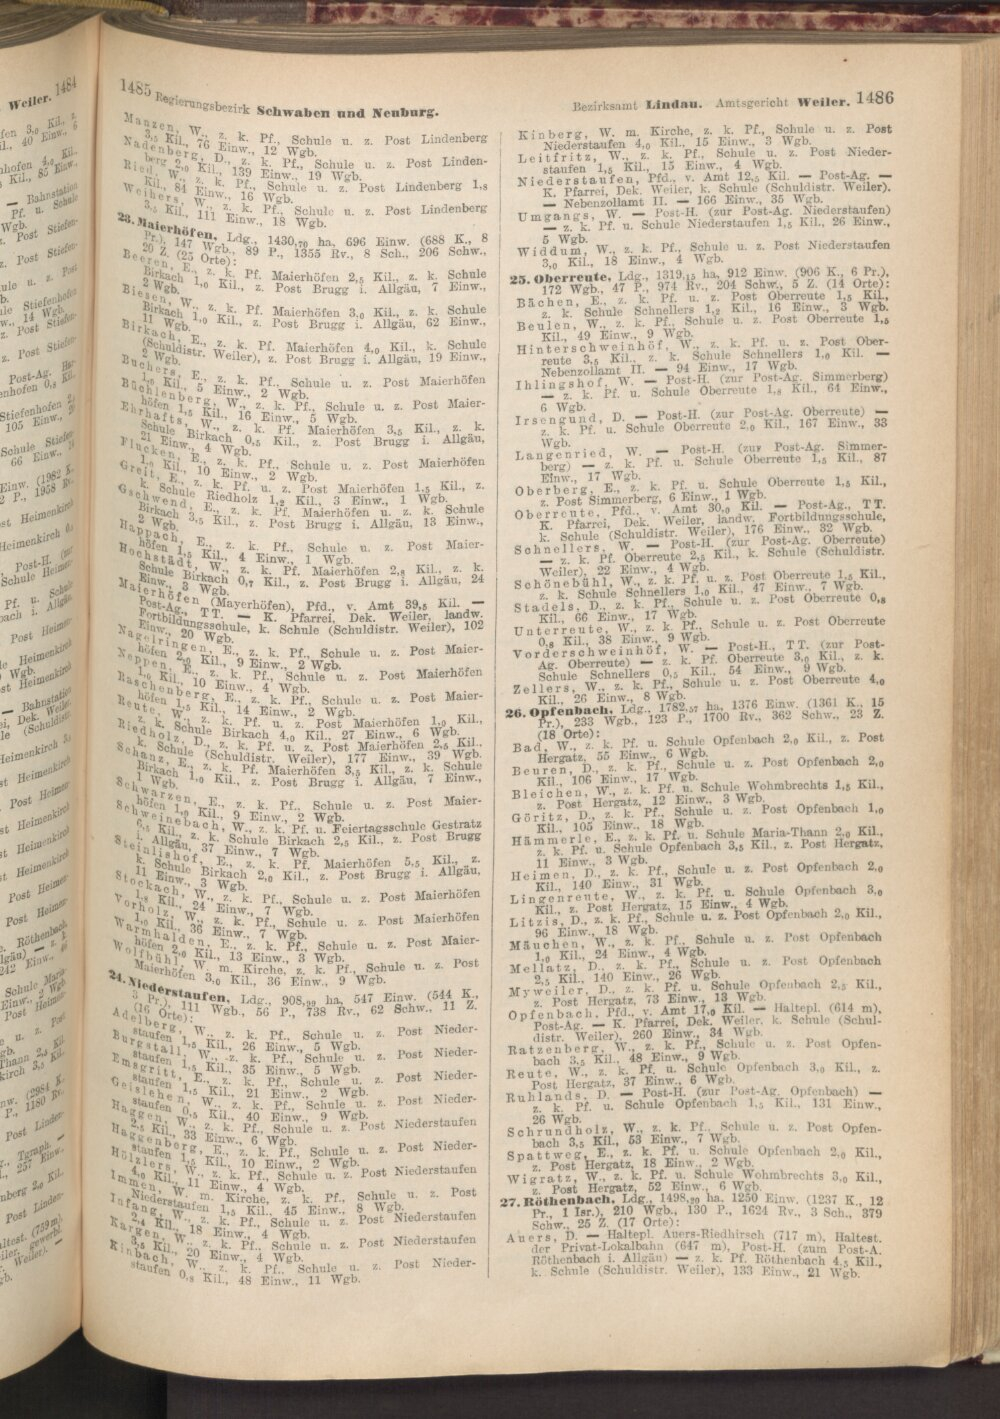 1485 Regierungsbezirk Schwaben und Neuburg.
Manzen, W., z. k. Pf., Schule u. z. Post Lindenberg
3,5 Kil., 76 Einw., 12 Wgb.
Nadenberg, D., z. k. Pf., Schule u. z. Post Linden-
berg 2,0 Kil., 139 Einw., 19 Wgb.
Ried, W., z. k. Pf., Schule u. z. Post Lindenberg 1,8
Kil., 84 Einw., 16 Wgb.
Weihers, W., z. k. Pf., Schule u. z. Post Lindenberg
3,5 Kil., 111 Einw., 18 Wgb.
23. Maierhöfen, Ldg., 1430,70 ha, 696 Einw. (688 K., 8
Pr.), 147 Wgb., 89 P., 1355 Rv., 8 Sch., 206 Schw.,
20 Z. (25 Orte):
Beeren, E., z. k. Pf. Maierhöfen 2,5 Kil., z. k. Schule
Birkach 1,0 Kil., z. Post Brugg i. Allgäu, 7 Einw.,
2 Wgb.
Biesen, W., z. k. Pf. Maierhöfen 3,0 Kil., z. k. Schule
Birkach 1,0 Kil., z. Post Brugg i. Allgäu, 62 Einw.,
11 Wgb.
Birkach, E., z. k. Pf. Maierhöfen 4,0 Kil., k. Schule
(Schuldistr. Weiler), z. Post Brugg i. Allgäu, 19 Einw.,
2 Wgb.
Buchers, E., z. k. Pf., Schule u. z. Post Maierhöfen
1,0 Kil., 5 Einw., 2 Wgb.
Büchlenberg, W., z. k. Pf., Schule u. z. Post Maier-
höfen 1,5 Kil., 16 Einw., 5 Wgb.
Ehrhafts, W., z. k. Pf. Maierhöfen 3,5 Kil., z. k.
Schule Birkach 0,5 Kil., z. Post Brugg i. Allgäu,
21 Einw., 4 Wgb.
Flucken, E., z. k. Pf., Schule u. z. Post Maierhöfen
1,0 Kil., 10 Einw., 2 Wgb.
Greit, E., z. k. Pf. u. z. Post Maierhöfen 1,5 Kil., z.
k. Schule Riedholz 1,2 Kil., 3 Einw., 1 Wgb.
Gschwend, E., z. k. Pf. Maierhöfen 2,0 Kil., z. k. Schule
Birkach 3,5 Kil., z. Post Brugg i. Allgäu, 13 Einw.,
2 Wgb.
Happach, E., z. k. Pf., Schule u. z. Post Maier-
höfen 1,5 Kil., 4 Einw., 1 Wgb.
Hochstädt, W., z. k. Pf. Maierhöfen 2,8 Kil., z. k.
Schule Birkach 0,7 Kil., z. Post Brugg i. Allgäu, 24
Einw., 3 Wgb.
Maierhöfen (Mayerhöfen), Pfd., v. Amt 39,5 Kil. —
Post-Ag., TT. — K. Pfarrei, Dek. Weiler, landw.
Fortbildungsschule, k. Schule (Schuldistr. Weiler), 102
Einw., 20 Wgb.
Nagelringen, E., z. k. Pf., Schule u. z. Post Maier-
höfen 2,0 Kil., 9 Einw., 2 Wgb.
Neppen, E., z. k. Pf., Schule u. z. Post Maierhöfen
1,0 Kil., 10 Einw., 4 Wgb.
Raschenberg, E., z. k. Pf., Schule u. z. Post Maier-
höfen 1,5 Kil., 14 Einw., 2 Wgb.
Reute, W., z. k. Pf. u. z. Post Maierhöfen 1,0 Kil.,
z. k. Schule Birkach 4,0 Kil., 27 Einw., 6 Wgb.
Riedholz, D., z. k. Pf. u. z. Post Maierhöfen 2,5 Kil.,
k. Schule (Schuldistr. Weiler), 177 Einw., 39 Wgb.
Schanz, E., z. k. Pf. Maierhöfen 3,5 Kil., z. k. Schule
Birkach 1,0 Kil., z. Post Brugg i. Allgäu, 7 Einw.,
1 Wgb.
Schwarzen, E., z. k. Pf., Schule u. z. Post Maier-
höfen 1,0 Kil., 9 Einw., 2 Wgb.
Schweinebach, W., z. k. Pf. u. Feiertagsschule Gestratz
6,5 Kil., z. k. Schule Birkach 2,5 Kil., z. Post Brugg
i. Allgäu, 37 Einw., 7 Wgb.
Steinlishof, E., z. k. Pf. Maierhöfen 5,5 Kil., z.
k. Schule Birkach 2,0 Kil., z. Post Brugg i. Allgäu,
11 Einw., 3 Wgb.
Stockach, W., z. k. Pf., Schule u. z. Post Maierhöfen
1,8 Kil., 24 Einw., 7 Wgb.
Vorholz, W., z. k. Pf., Schule u. z. Post Maierhöfen
1,0 Kil., 36 Einw., 7 Wgb.
Warmhalden, E., z. k. Pf., Schule u. z. Post Maier-
höfen 2,0 Kil., 13 Einw., 3 Wgb.
Wolfbühl, W. m. Kirche, z. k. Pf., Schule u. z. Post
Maierhöfen 3,0 Kil., 36 Einw., 9 Wgb.
24. Niederstaufen, Ldg., 908,99 ha, 547 Einw. (544 K.,
3 Pr.), 111 Wgb., 56 P., 738 Rv., 62 Schw., 11 Z.
(16 Orte):
Adelberg, W., z. k. Pf., Schule u. z. Post Nieder-
staufen 1,5 Kil., 26 Einw., 5 Wgb.
Burgstall, W., z. k. Pf., Schule u. z. Post Nieder-
staufen 1,5 Kil., 35 Einw., 5 Wgb.
Emsgritt, E., z. k. Pf., Schule u. z. Post Nieder-
staufen 1,5 Kil., 21 Einw., 2 Wgb.
Geislehen, W., z. k. Pf., Schule u. z. Post Nieder-
staufen 0,5 Kil., 40 Einw., 9 Wgb.
Haggen, W., z. k. Pf., Schule u. z. Post Niederstaufen
2,5 Kil., 33 Einw., 6 Wgb.
Haggenberg, E., z. k. Pf., Schule u. z. Post Nieder-
staufen 1,5 Kil., 10 Einw., 2 Wgb.
Hölzlers, W., z. k. Pf., Schule u. z. Post Niederstaufen
4,0 Kil., 11 Einw., 4 Wgb.
Immen, W. m. Kirche, z. k. Pf., Schule u. z. Post
Niederstaufen 1,5 Kil., 45 Einw., 8 Wgb.
Infang, W., z. k. Pf., Schule u. z. Post Niederstaufen
2,4 Kil., 18 Einw., 4 Wgb.
Kärgen, W., z. k. Pf., Schule u. z. Post Niederstaufen
3,5 Kil., 20 Einw., 4 Wgb.
Kinbach, W., z. k. Pf., Schule u. z. Post Nieder-
staufen 0,8 Kil., 48 Einw., 11 Wgb.
Bezirksamt Lindau. Amtsgericht Weiler. 1486
Kinberg, W. m. Kirche, z. k. Pf., Schule u. z. Post
Niederstaufen 4,0 Kil., 15 Einw., 3 Wgb.
Leitfritz, W., z. k. Pf., Schule u. z. Post Nieder-
staufen 1,5 Kil., 15 Einw., 4 Wgb.
Niederstaufen, Pfd., v. Amt 12,5 Kil. — Post-Ag. —
K. Pfarrei, Dek. Weiler, k. Schule (Schuldistr. Weiler).
— Nebenzollamt II. — 166 Einw., 35 Wgb.
Umgangs, W. — Post-H. (zur Post-Ag. Niederstaufen)
— z. k. Pf. u. Schule Niederstaufen 1,5 Kil., 26 Einw.,
5 Wgb.
Widdum, W., z. k. Pf., Schule u. z. Post Niederstaufen
3,0 Kil., 18 Einw., 4 Wgb.
25. Oberreute, Ldg., 1319,15 ha, 912 Einw. (906 K., 6 Pr.),
172 Wgb., 47 P., 974 Rv., 204 Schw., 5 Z. (14 Orte):
Bächen, E., z. k. Pf. u. z. Post Oberreute 1,5 Kil.,
z. k. Schule Schnellers 1,2 Kil., 16 Einw., 3 Wgb.
Beulen, W., z. k. Pf., Schule u. z. Post Oberreute 1,5
Kil., 49 Einw., 9 Wgb.
Hinterschweinhöf, W., z. k. Pf. u. z. Post Ober-
reute 3,5 Kil., z. k. Schule Schnellers 1,0 Kil. —
Nebenzollamt II. — 94 Einw., 17 Wgb.
Ihlingshof, W. — Post-H. (zur Post-Ag. Simmerberg)
— z. k. Pf. u. Schule Oberreute 1,8 Kil., 64 Einw.,
6 Wgb.
Irsengund, D. — Post-H. (zur Post-Ag. Oberreute) —
z. k. Pf. u. Schule Oberreute 2,0 Kil., 167 Einw., 33
Wgb.
Langenried, W. — Post-H. (zur Post-Ag. Simmer-
berg) — z. k. Pf. u. Schule Oberreute 1,5 Kil., 87
Einw., 17 Wgb.
Oberberg, E., z. k. Pf. u. Schule Oberreute 1,5 Kil.,
z. Post Simmerberg, 6 Einw., 1 Wgb.
Oberreute, Pfd., v. Amt 30,0 Kil. — Post-Ag., TT.
K. Pfarrei, Dek. Weiler, landw. Fortbildungsschule,
k. Schule (Schuldistr. Weiler), 176 Einw., 32 Wgb.
Schnellers, W. — Post-H. (zur Post-Ag. Oberreute)
— z. k. Pf. Oberreute 2,5 Kil., k. Schule (Schuldistr.
Weiler), 22 Einw., 4 Wgb.
Schönebühl, W., z. k. Pf. u. z. Post Oberreute 1,5 Kil.,
z. k. Schule Schnellers 1,0 Kil., 47 Einw., 7 Wgb.
Stadels, D., z. k. Pf., Schule u. z. Post Oberreute 0,8
Kil., 66 Einw., 17 Wgb.
Unterreute, W., z. k. Pf., Schule u. z. Post Oberreute
0,8 Kil., 38 Einw., 9 Wgb.
Vorderschweinhöf, W. — Post-H., TT. (zur Post-
Ag. Oberreute) — z. k. Pf. Oberreute 3,0 Kil., z. k.
Schule Schnellers 0,5 Kil., 54 Einw., 9 Wgb.
Zellers, W., z. k. Pf., Schule u. z. Post Oberreute 4,0
Kil., 26 Einw., 8 Wgb.
26. Opfenbach, Ldg., 1782,57 ha, 1376 Einw. (1361 K., 15
Pr.), 233 Wgb., 123 P., 1700 Rv., 362 Schw., 23 Z.
(18 Orte):
Bad, W., z. k. Pf. u. Schule Opfenbach 2,0 Kil., z. Post
Hergatz, 55 Einw., 6 Wgb.
Beuren, D., z. k. Pf., Schule u. z. Post Opfenbach 2,0
Kil., 106 Einw., 17 Wgb.
Bleichen, W., z. k. Pf. u. Schule Wohmbrechts 1,5 Kil.,
z. Post Hergatz, 12 Einw., 3 Wgb.
Göritz, D., z. k. Pf., Schule u. z. Post Opfenbach 1,0
Kil., 105 Einw., 18 Wgb.
Hämmerle, E., z. k. Pf. u. Schule Maria-Thann 2,0 Kil.,
z. k. Pf. u. Schule Opfenbach 3,5 Kil., z. Post Hergatz,
11 Einw., 3 Wgb.
Heimen, D., z. k. Pf., Schule u. z. Post Opfenbach 2,0
Kil., 140 Einw., 31 Wgb.
Lingenreute, W., z. k. Pf. u. Schule Opfenbach 3,0
Kil., z. Post Hergatz, 15 Einw., 4 Wgb.
Litzis, D., z. k. Pf., Schule u. z. Post Opfenbach 2,0 Kil.,
96 Einw., 18 Wgb.
Mäuchen, W., z. k. Pf., Schule u. z. Post Opfenbach
1,0 Kil., 24 Einw., 4 Wgb.
Mellatz, D., z. k. Pf., Schule u. z. Post Opfenbach
2,5 Kil., 140 Einw., 26 Wgb.
Myweiler, D., z. k. Pf. u. Schule Opfenbach 2,5 Kil.,
z. Post Hergatz, 73 Einw., 13 Wgb.
Opfenbach, Pfd., v. Amt 17,0 Kil. — Haltepl. (614 m),
Post-Ag. — K. Pfarrei, Dek. Weiler, k. Schule (Schul-
distr. Weiler), 260 Einw., 34 Wgb.
Ratzenberg, W., z. k. Pf., Schule u. z. Post Opfen-
bach 3,5 Kil., 48 Einw., 9 Wgb.
Reute, W., z. k. Pf. u. Schule Opfenbach 3,0 Kil., z.
Post Hergatz, 37 Einw., 6 Wgb.
Ruhlands, D. — Post-H. (zur Post-Ag. Opfenbach) —
z. k. Pf. u. Schule Opfenbach 1,5 Kil., 131 Einw.,
26 Wgb.
Schrundholz, W., z. k. Pf., Schule u. z. Post Opfen-
bach 3,5 Kil., 53 Einw., 7 Wgb.
Spattweg, E., z. k. Pf. u. Schule Opfenbach 2,0 Kil.,
z. Post Hergatz, 18 Einw., 2 Wgb.
Wigratz, W., z. k. Pf. u. Schule Wohmbrechts 3,0 Kil.,
z. Post Hergatz, 52 Einw., 6 Wgb.
27. Röthenbach, Ldg., 1498,20 ha, 1250 Einw. (1237 K., 12
Pr., 1 Isr.), 210 Wgb., 130 P., 1624 Rv., 3 Sch., 379
Schw., 25 Z. (17 Orte):
Auers, D. — Haltepl. Auers-Riedhirsch (717 m), Haltest.
der Privat-Lokalbahn (647 m), Post-H. (zum Post-A.
Röthenbach i. Allgäu) — z. k. Pf. Röthenbach 4,5 Kil.,
k. Schule (Schuldistr. Weiler), 133 Einw., 21 Wgb.